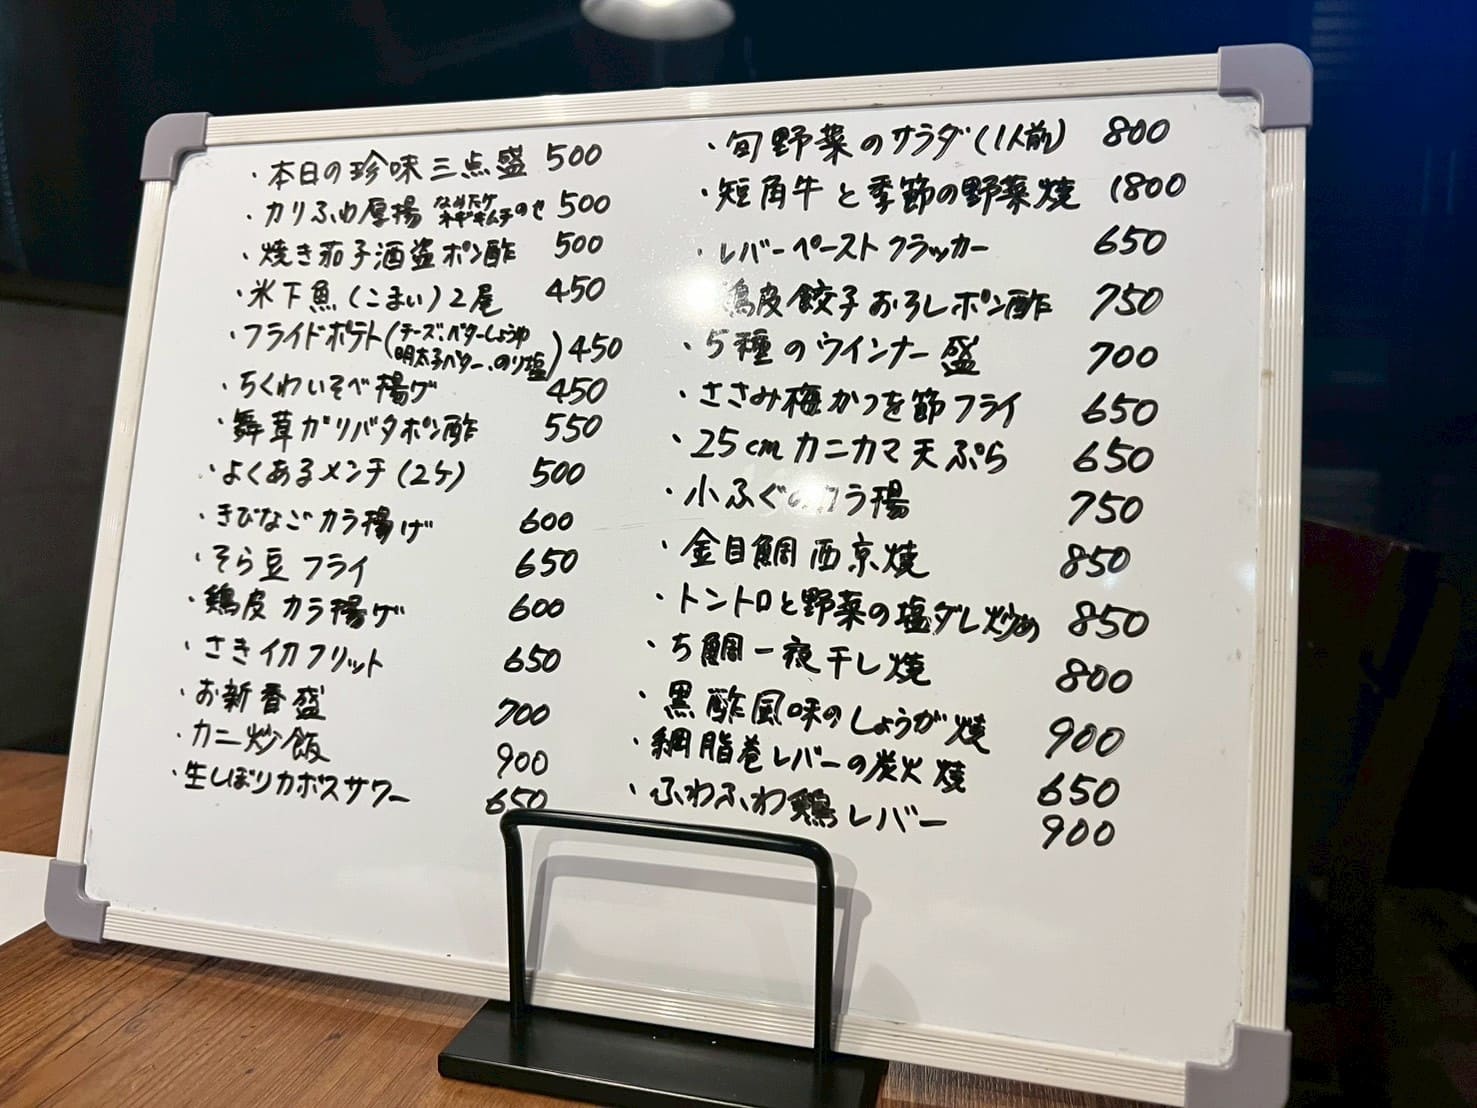 ・本日の珍味三点盛 500
・カリふわ厚揚 なめたけ ネギキムチのせ 500
・焼き茄子酒盗ポン酢 500
・氷下魚(こまい)2尾 450
・フライドポテト(チーズ、バターしょうゆ 明太子バター、のり塩) 450
・ちくわいそべ揚げ 450
・舞茸ガリバタポン酢 550
・よくあるメンチ(2ケ) 500
・きびなごカラ揚げ 600
・そら豆フライ 650
・鶏皮カラ揚げ 600
・さきイカフリット 650
・お新香盛 700
・カニ炒飯 900
・生しぼりカボスサワー 650
・旬野菜のサラダ(1人前) 800
・短角牛と季節の野菜焼 1800
・レバーペーストクラッカー 650
鶏皮餃子おろしポン酢 750
・5種のウインナー盛 700
・ささみ梅かつを節フライ 650
・25cmカニカマ天ぷら 650
・小ふぐのカラ揚 750
・金目鯛西京焼 850
・トントロと野菜の塩ダレ炒め 850
・ち鯛一夜干し焼 800
・黒酢風味のしょうが焼 900
・網脂巻レバーの炭火焼 650
・ふわふわ鶏レバー 900